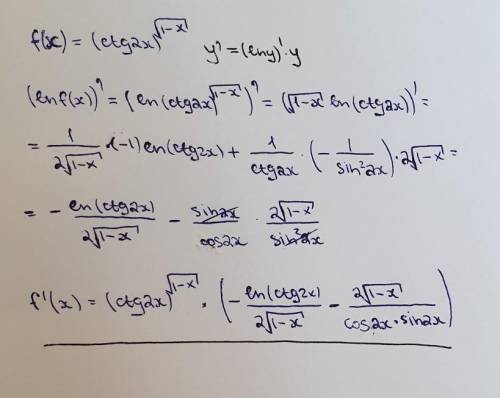 f(x) = (ctg2x)^√(1-x)    y' = (lny)'·y
(lnf(x))' = (ln(ctg2x)^√(1-x))' = (√(1-x) ln(ctg2x))' =
= 1/(2√(1-x)) ·(-1) ln(ctg2x) + 1/ctg2x · (- 1/sin²2x) · 2√(1-x) =
= - ln(ctg2x)/(2√(1-x)) - sin2x/cos2x · 2√(1-x)/sin²2x
f'(x) = (ctg2x)^√(1-x) · (- ln(ctg2x)/(2√(1-x)) - 2√(1-x)/(cos2x·sin2x))